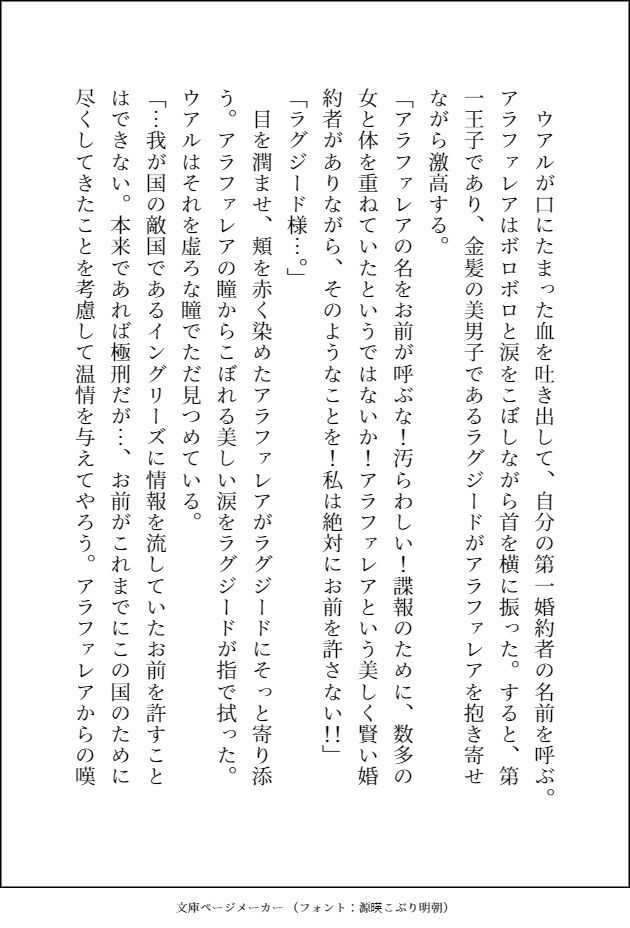 ウアルが口にたまった血を吐き出して、自分の第一婚約者の名前を呼ぶ。
アラファレアはボロボロと涙をこぼしながら首を横に振った。すると、第
一王子であり、金髪の美男子であるラグジードがアラファレアを抱き寄せ
ながら激高する。
「アラファレアの名をお前が呼ぶな！汚らわしい！諜報のために、数多の
女と体を重ねていたというではないか！アラファレアという美しく賢い婚
約者がありながら、そのようなことを！私は絶対にお前を許さない!!」
「ラグジード様…。」
　目を潤ませ、頬を赤く染めたアラファレアがラグジードにそっと寄り添
う。アラファレアの瞳からこぼれる美しい涙をラグジードが指で拭った。
ウアルはそれを虚ろな瞳でただ見つめている。
「…我が国の敵国であるイングリーズに情報を流していたお前を許すこと
はできない。本来であれば極刑だが…、お前がこれまでにこの国のために
尽くしてきたことを考慮して温情を与えてやろう。アラファレアからの嘆
文庫ページメーカー（フォント：源暎こぶり明朝）